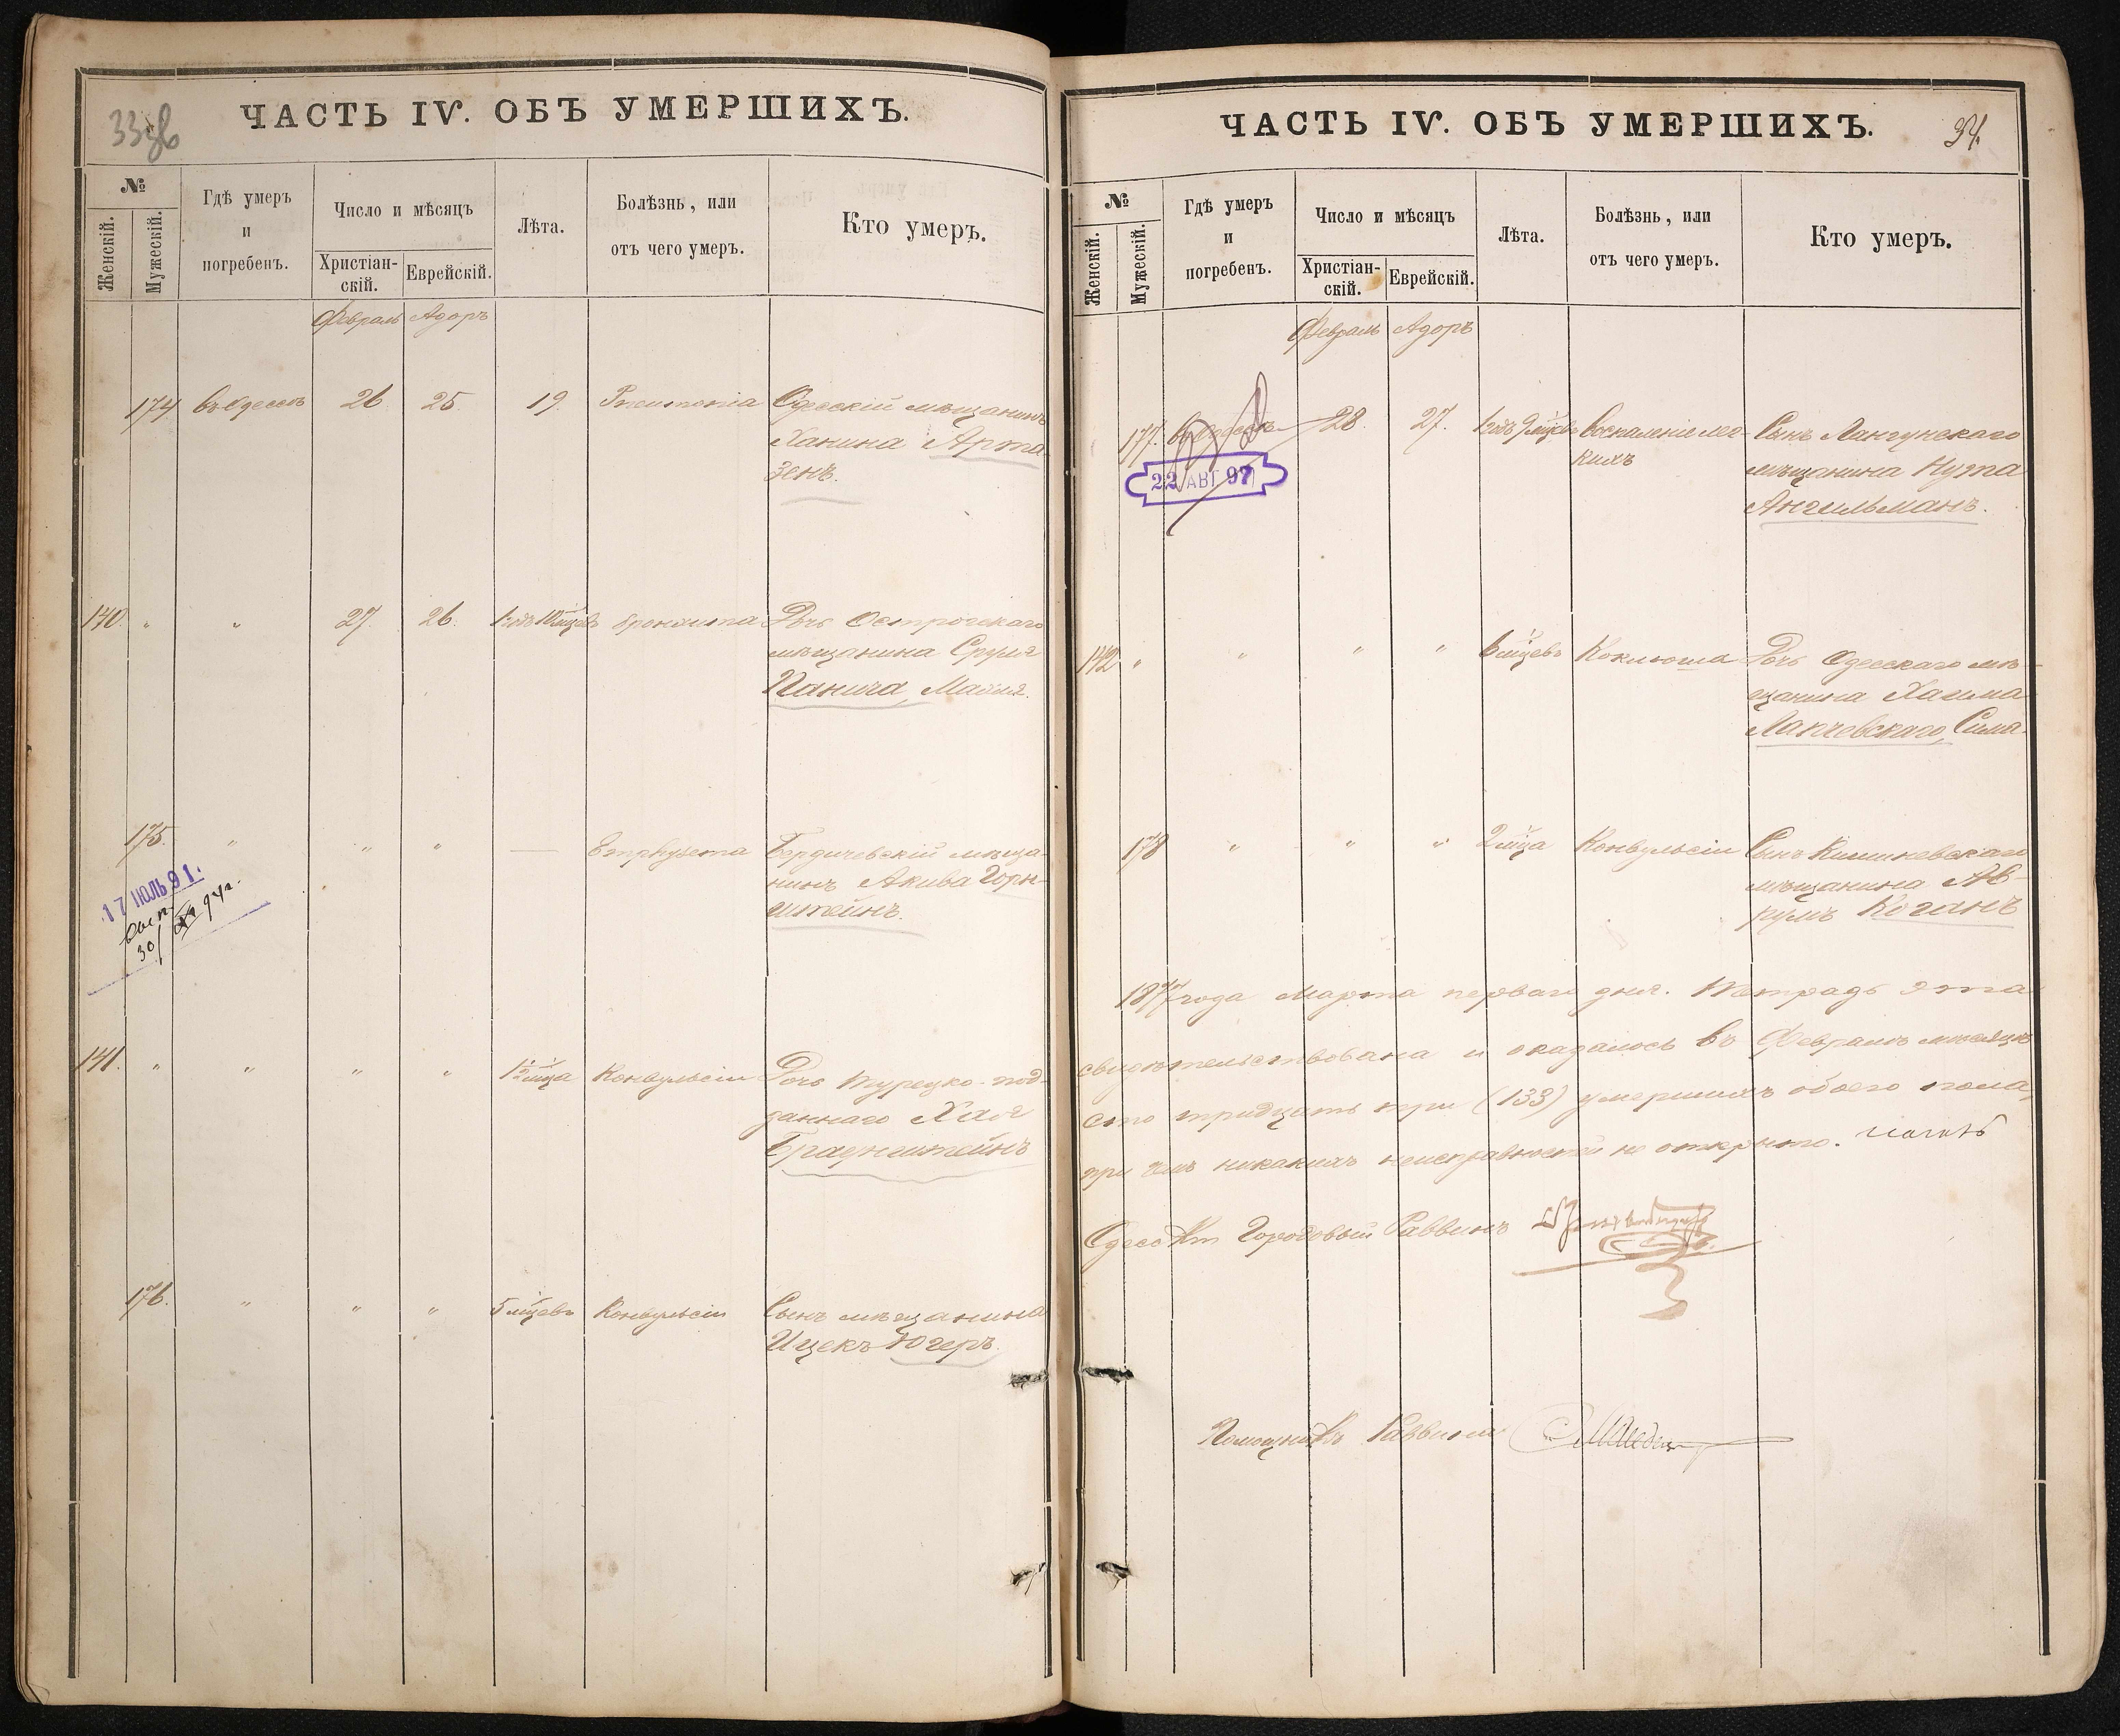 33 об
ЧАСТЬ IV. ОБЪ УМЕРШИХЪ.
№
Женскій.
Мужескій.
Гдѣ умеръ
и
погребенъ.
Число и мѣсяцъ
Христіан-
скій.
Еврейскій.
Лѣта.
Болѣзнь, или
отъ чего умеръ.
Кто умеръ.
Февраль Адоръ
174 въ Одессѣ 26 25 19. Pneumonia Одесскій мѣщанинъ
Ханина Арта-
зенъ.
140. " " 27. 26. 1 годъ 10 мѣцевъ бронхита Дочь Острогскаго
мѣщанина Сруля
Панича, Маіия.
175. " " " — Emphysema Бердичевскій мѣща-
нинъ Акива Горн-
штейнъ.
17 ІЮЛЬ 91.
30/XI 94 г.
141. " " " " 1½ мѣца Конвульсіи Дочь Турецко-под-
даннаго Хая
Браунштейнъ
176. " " " 5 мѣцевъ Конвульсіи Сынъ мѣщанина
Ицекъ Югеръ.
ЧАСТЬ IV. ОБЪ УМЕРШИХЪ.
34.
№
Женскій.
Мужескій.
Гдѣ умеръ
и
погребенъ.
Число и мѣсяцъ
Христіан-
скій.
Еврейскій.
Лѣта.
Болѣзнь, или
отъ чего умеръ.
Кто умеръ.
Февраль Адоръ
177. въ Одессѣ 28. 27. 1 годъ 9 мѣцевъ Воспаленіе лег-
кихъ
Сынъ
мѣщанина Нута
Ангильманъ.
22 АВГ 97
142 " " " " 6 мѣцевъ Коклюша Дочь Одесскаго мѣ-
щанина Хаима
Лапчевскаго, Сима.
178 " " " 2 мѣца Конвульсіи Сынъ Кишиневскаго
мѣщанина Ав-
румъ Коганъ
1877 года Марта перваго дня. Тетрадь эта
свидѣтельствована и оказалось въ Февралѣ мѣсяцѣ
сто тридцать три (133) умершихъ обоего пола,
при чемъ никакихъ неисправностей не открыто.
Одесскій Городовый Раввинъ
Помощникъ Раввина